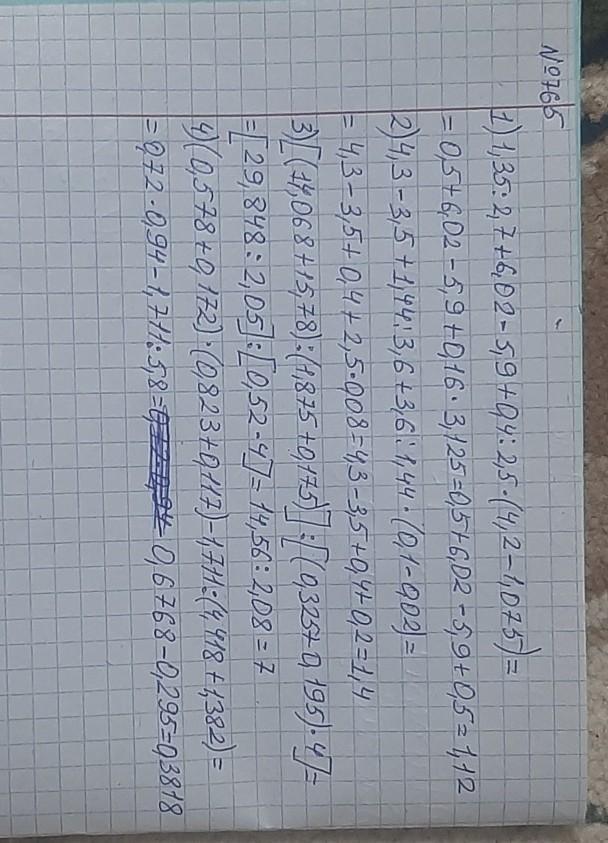 №765
1) 1,35:2,7+6,02-5,9+0,4:2,5·(4,2-1,075)=
=0,5+6,02-5,9+0,16·3,125=0,5+6,02-5,9+0,5=1,12
2) 4,3-3,5+1,44:3,6+3,6:1,44·(0,1-0,02)=
=4,3-3,5+0,4+2,5·0,08=4,3-3,5+0,4+0,2=1,4
3) [(14,068+15,78):(1,875+0,175)]:[(0,325+0,195)·4]=
=[29,848:2,05]:[0,52·4]=14,56:2,08=7
4) (0,578+0,172)·(0,823+0,117)-1,711:(4,418+1,382)=
=0,72·0,94-1,711:5,8=0,6768-0,295=0,3818